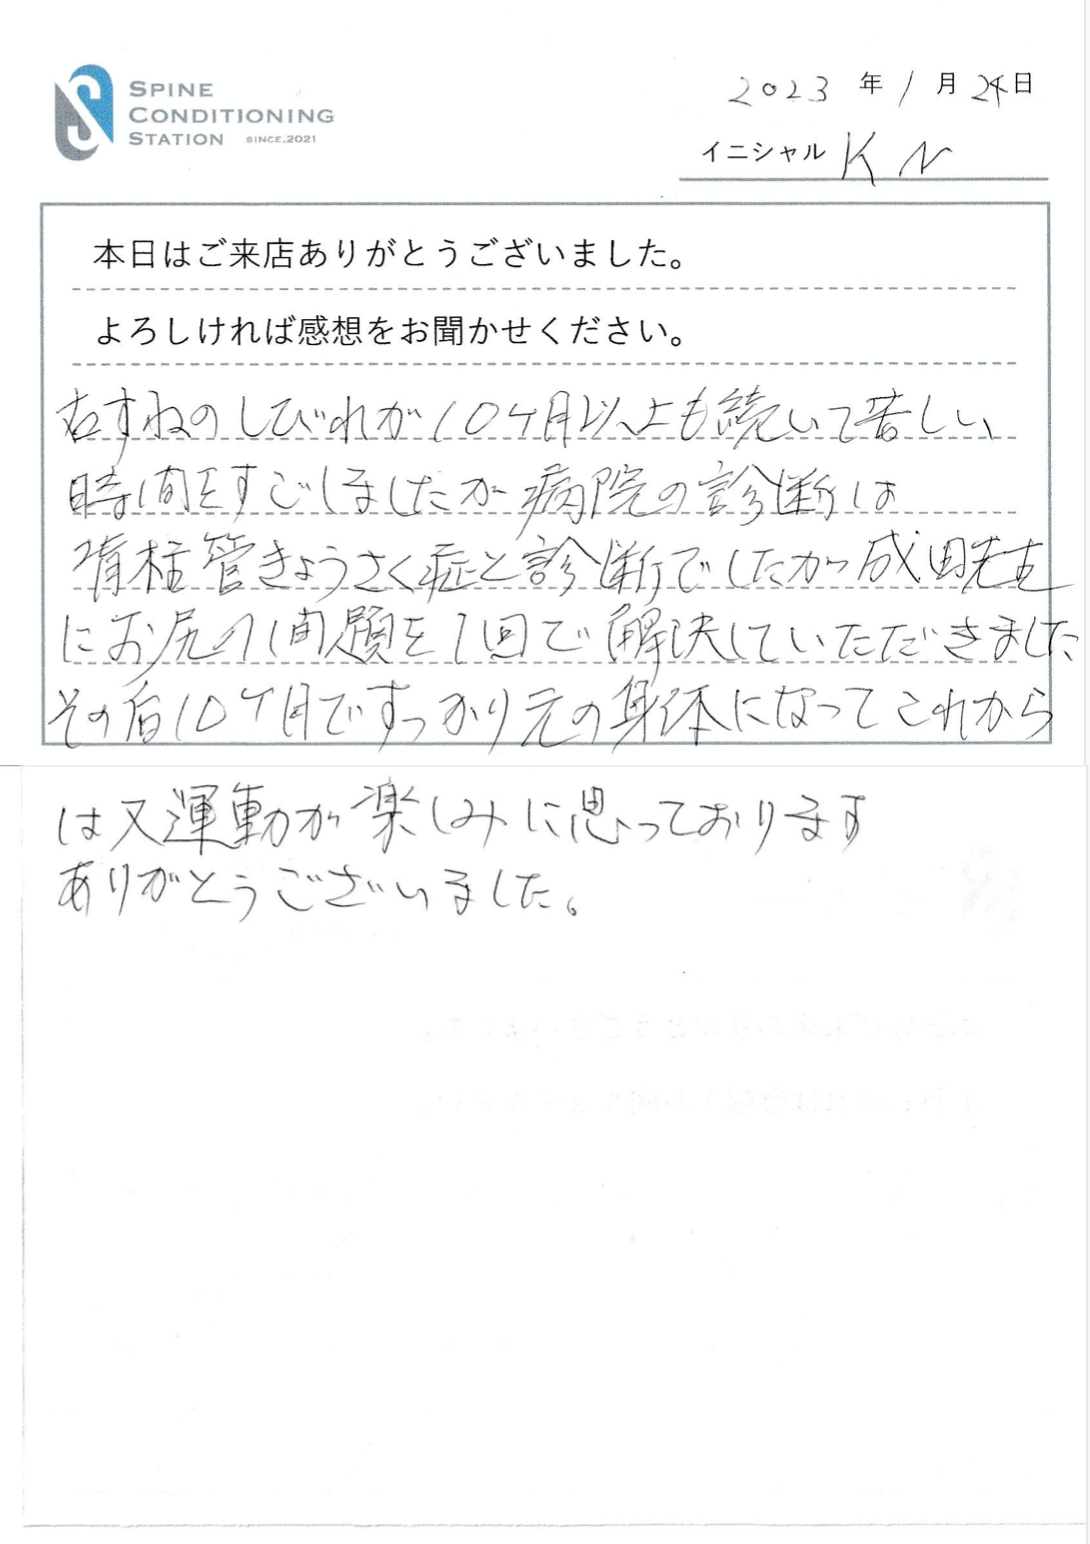 SPINE
CONDITIONING
STATION SINCE.2021
2023 年 1 月 24 日
イニシャル K N
本日はご来店ありがとうございました。
よろしければ感想をお聞かせください。
右すねのしびれが10ヶ月以上も続いて苦しい
時間をすごしましたが病院の診断は
脊柱管きょうさく症と診断でしたが成田先生
にお尻の問題を1回で解決していただきました
その後10ヶ月ですっかり元の身体になってこれから
は又運動が楽しみに思っております
ありがとうございました。